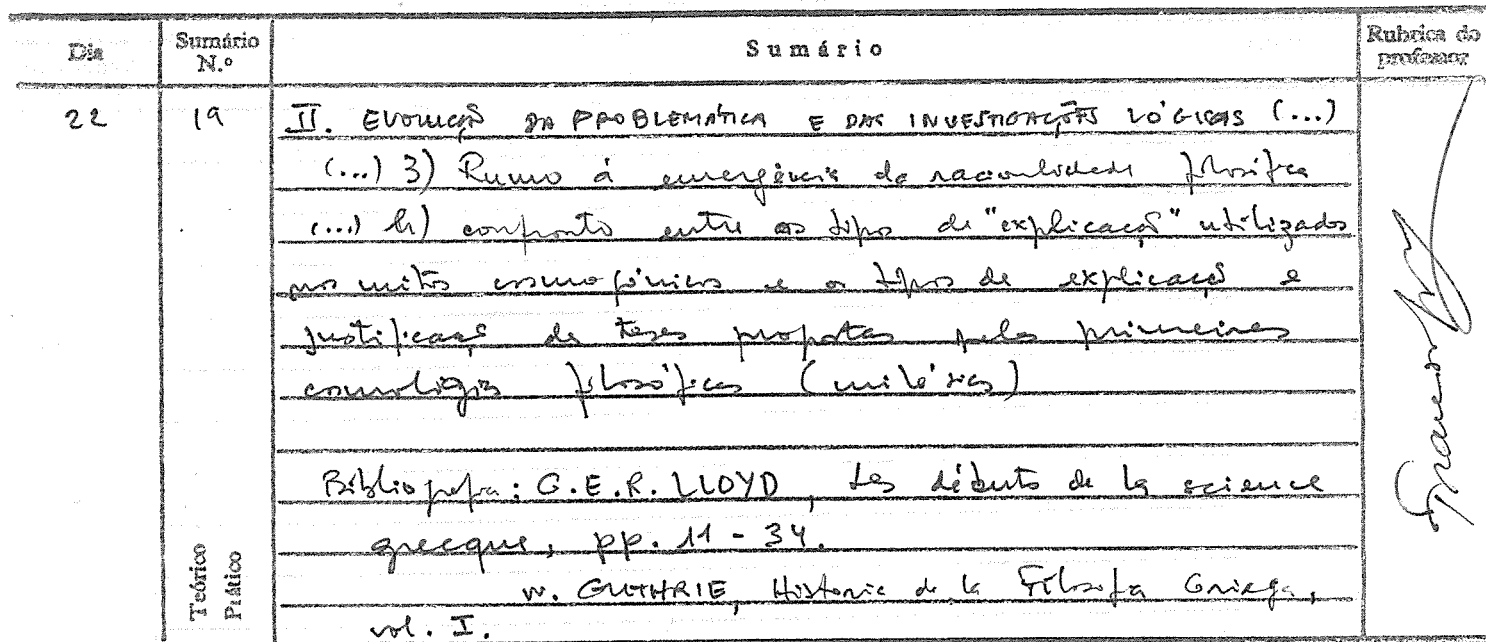 Dia
Sumário N.º
Sumário
Rubrica do professor
22
19
II. EVOLUÇÃO DA PROBLEMÁTICA E DAS INVESTIGAÇÕES LÓGICAS (...)
(...) 3) Rumo à emergência da racionalidade filosófica
(...) b) confronto entre os tipos de "explicação" utilizados
nos mitos cosmogónicos e os tipos de explicação e
justificação de teses propostas pelas primeiras
cosmologias filosóficas (milésicas)
Bibliografia: G.E.R. LLOYD, Les débuts de la science
grecque, pp. 11 - 34.
W. GUTHRIE, Historia de la Filosofía Griega,
vol. I.
Teórico
Prático